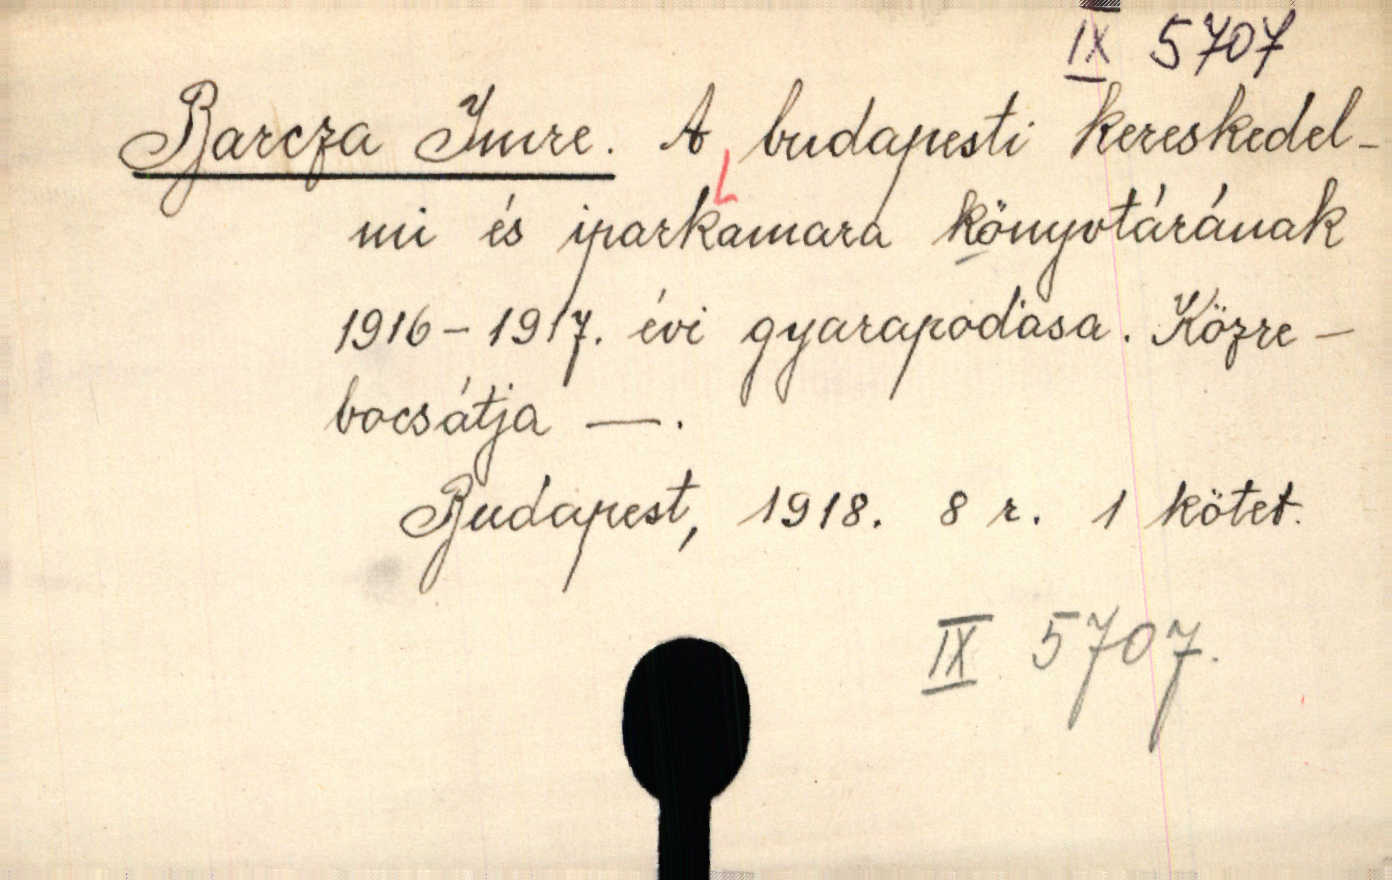 IX 5707
Barcza Imre. A budapesti kereskedel-
mi és iparkamara könyvtárának
1916-1917. évi gyarapodása. Közre-
bocsátja —.
Budapest, 1918. 8 r. 1 kötet.
IX 5707.